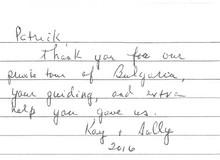 Patrick
Thank you for our
private tour of Bulgaria,
your guiding, and extra
help you gave us.
Kay & Sally
2016